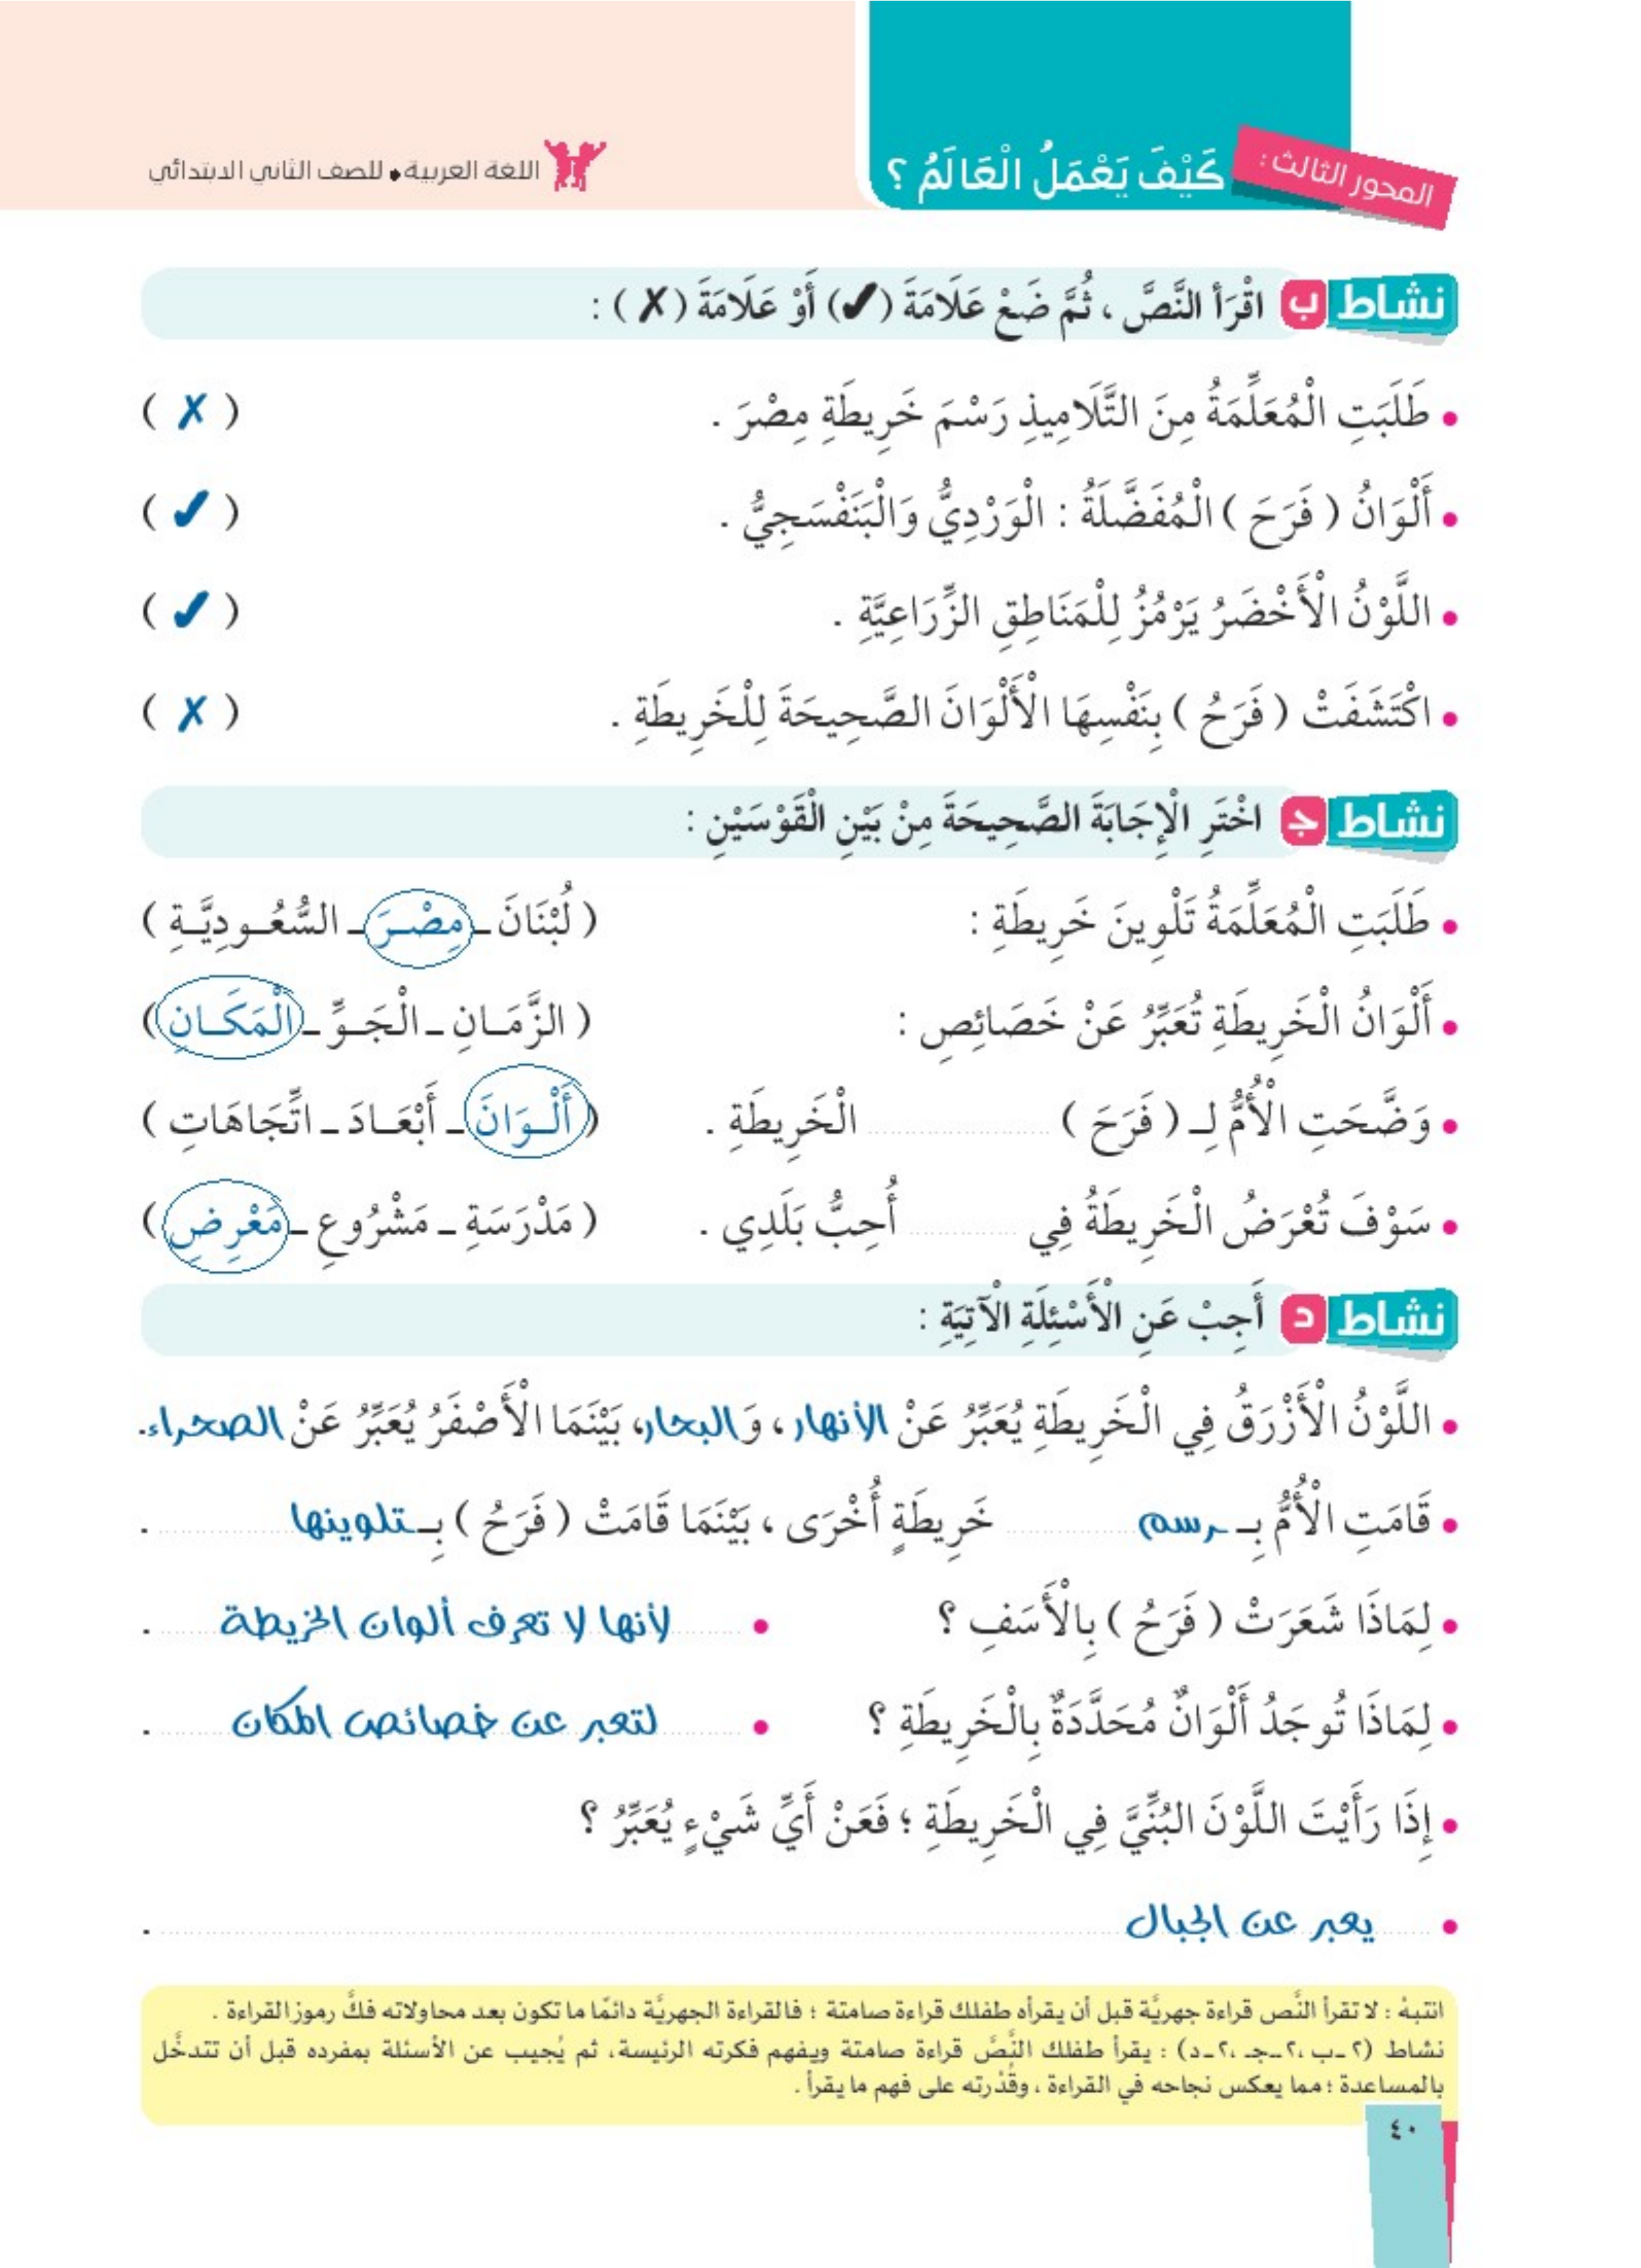 المحور الثالث :
كَيْفَ يَعْمَلُ الْعَالَمُ ؟
اللغة العربية • للصف الثاني الابتدائي
نشاط ب اقْرَأ النَّصَّ ، ثُمَّ ضَعْ عَلَامَةَ (✔) أَوْ عَلَامَةَ (✗) :
• طَلَبَتِ الْمُعَلِّمَةُ مِنَ التَّلَامِيذِ رَسْمَ خَرِيطَةِ مِصْرَ . ( ✗ )
• أَلْوَانُ ( فَرَحَ ) الْمُفَضَّلَةُ : الْوَرْدِيُّ وَالْبَنَفْسَجِيُّ . ( ✔ )
• اللَّوْنُ الْأَخْضَرُ يَرْمُزُ لِلْمَنَاطِقِ الزِّرَاعِيَّةِ . ( ✔ )
• اكْتَشَفَتْ ( فَرَحُ ) بِنَفْسِهَا الْأَلْوَانَ الصَّحِيحَةَ لِلْخَرِيطَةِ . ( ✗ )
نشاط جـ اخْتَرِ الْإِجَابَةَ الصَّحِيحَةَ مِنْ بَيْنِ الْقَوْسَيْنِ :
• طَلَبَتِ الْمُعَلِّمَةُ تَلْوِينَ خَرِيطَةِ : ( لُبْنَانَ ـ مِصْـرَ ـ السُّعُـودِيَّـةِ )
• أَلْوَانُ الْخَرِيطَةِ تُعَبِّرُ عَنْ خَصَائِصِ : ( الزَّمَـانِ ـ الْجَـوِّ ـ الْمَكَـانِ )
• وَضَّحَتِ الْأُمُّ لِـ ( فَرَحَ ) .......... الْخَرِيطَةِ . ( أَلْـوَانَ ـ أَبْعَـادَ ـ اتِّجَاهَاتِ )
• سَوْفَ تُعْرَضُ الْخَرِيطَةُ فِي .......... أُحِبُّ بَلَدِي . ( مَدْرَسَةِ ـ مَشْرُوعِ ـ مَعْرِضِ )
نشاط د أَجِبْ عَنِ الْأَسْئِلَةِ الْآتِيَةِ :
• اللَّوْنُ الْأَزْرَقُ فِي الْخَرِيطَةِ يُعَبِّرُ عَنْ الأنهار ، وَ البحار، بَيْنَمَا الْأَصْفَرُ يُعَبِّرُ عَنْ الصحراء.
• قَامَتِ الْأُمُّ بِـ رسم .......... خَرِيطَةٍ أُخْرَى ، بَيْنَمَا قَامَتْ ( فَرَحُ ) بِـ تلوينها .......... .
• لِمَاذَا شَعَرَتْ ( فَرَحُ ) بِالْأَسَفِ ؟ • لأنها لا تعرف ألوان الخريطة .
• لِمَاذَا تُوجَدُ أَلْوَانٌ مُحَدَّدَةٌ بِالْخَرِيطَةِ ؟ • لتعبر عن خصائص المكان .
• إِذَا رَأَيْتَ اللَّوْنَ البُنِّيَّ فِي الْخَرِيطَةِ ؛ فَعَنْ أَيِّ شَيْءٍ يُعَبِّرُ ؟
• يعبر عن الجبال .
انتبهْ : لا تقرأ النَّص قراءة جهريَّة قبل أن يقرأه طفلك قراءة صامتة ؛ فالقراءة الجهريَّة دائمًا ما تكون بعد محاولاته فكَّ رموز القراءة .
نشاط (٢ـ ب ،٢ـ جـ ،٢ـ د) : يقرأ طفلك النَّصَّ قراءة صامتة ويفهم فكرته الرئيسة، ثم يُجيب عن الأسئلة بمفرده قبل أن تتدخَّل
بالمساعدة ؛ مما يعكس نجاحه في القراءة ، وقُدْرته على فهم ما يقرأ .
٤٠